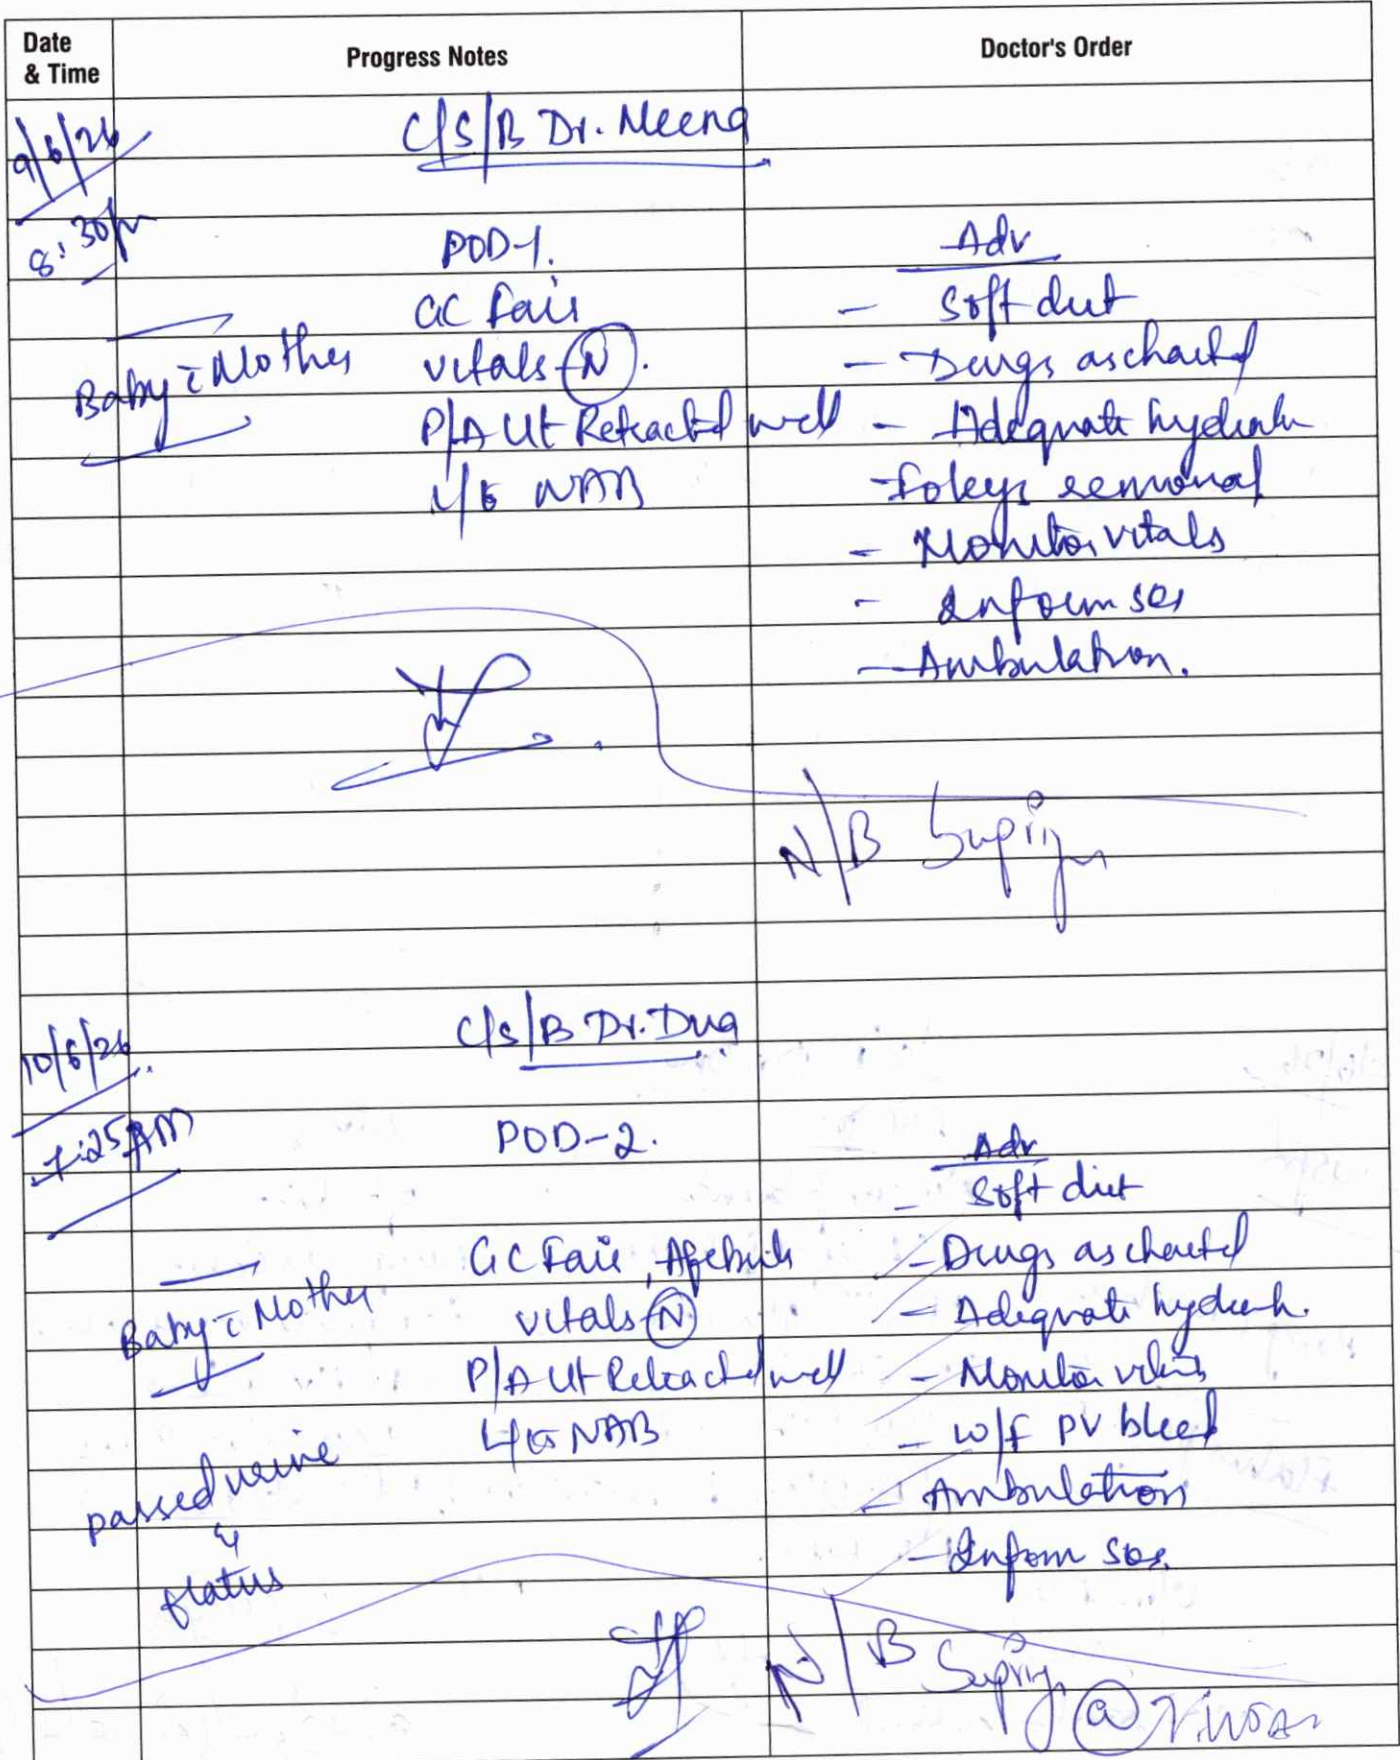 Date & Time Progress Notes Doctor's Order
9/6/26 C/S/B Dr. Meena
8:30pm POD-1. Adv
GC Fair - Soft diet
Baby c̄ Mother vitals-(N). - Drugs as charted
P/A Ut Retracted well - Adequate hydration
L/E NAB - Foleys removal
- Monitor vitals
- Inform sos
- Ambulation.
N/B Supriya
10/6/26 C/S/B Dr. Dua
7:25 AM POD-2. Adv
- Soft diet
GC Fair, Afebrile - Drugs as charted
Baby c̄ Mother vitals-(N) - Adequate hydrah.
P/A Ut Retracted well - Monitor vitals
L/E NAB - w/f PV bleed
passed urine - Ambulation
& - Inform sos.
flatus
N/B Supriya @